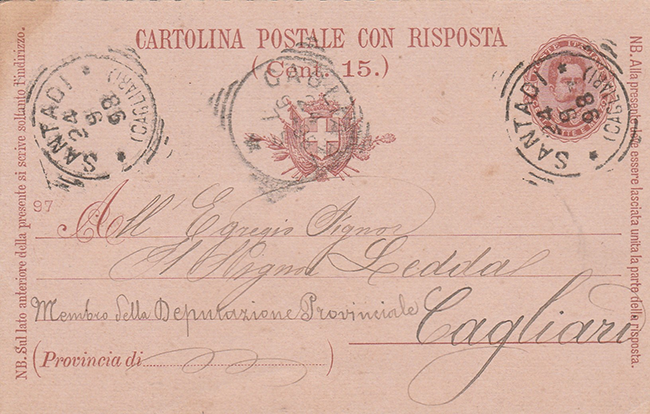 CARTOLINA POSTALE CON RISPOSTA
(Cent. 15.)
SANTADI
24
9
98
(CAGLIARI)
SANTADI
24
9
98
(CAGLIARI)
NB. Sul lato anteriore della presente si scrive soltanto l'indirizzo.
NB. Alla presente deve essere lasciata unita la parte della risposta.
97
All' Egregio Signor
Ledda
Membro della Deputazione Provinciale
Cagliari
(Provincia di